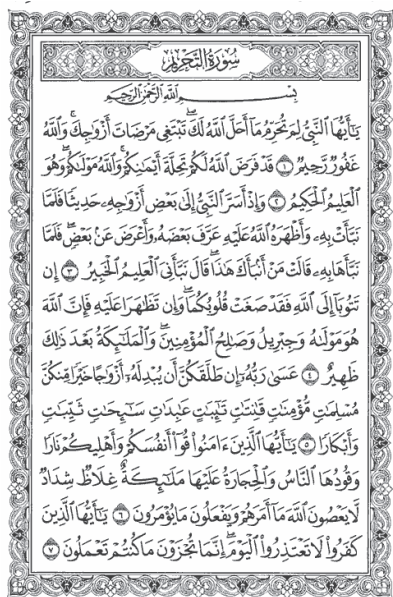 سُورَةُ التَّحْرِيمِ
بِسْمِ اللَّهِ الرَّحْمَٰنِ الرَّحِيمِ
يَٰٓأَيُّهَا النَّبِيُّ لِمَ تُحَرِّمُ مَآ أَحَلَّ اللَّهُ لَكَ ۖ تَبْتَغِي مَرْضَاتَ أَزْوَٰجِكَ ۚ وَاللَّهُ
غَفُورٌ رَّحِيمٌ ١ قَدْ فَرَضَ اللَّهُ لَكُمْ تَحِلَّةَ أَيْمَٰنِكُمْ ۚ وَاللَّهُ مَوْلَىٰكُمْ ۖ وَهُوَ
الْعَلِيمُ الْحَكِيمُ ٢ وَإِذْ أَسَرَّ النَّبِيُّ إِلَىٰ بَعْضِ أَزْوَٰجِهِۦ حَدِيثًا فَلَمَّا
نَبَّأَتْ بِهِۦ وَأَظْهَرَهُ اللَّهُ عَلَيْهِ عَرَّفَ بَعْضَهُۥ وَأَعْرَضَ عَنۢ بَعْضٍ ۖ فَلَمَّا
نَبَّأَهَا بِهِۦ قَالَتْ مَنْ أَنۢبَأَكَ هَٰذَا ۖ قَالَ نَبَّأَنِيَ الْعَلِيمُ الْخَبِيرُ ٣ إِن
تَتُوبَآ إِلَى اللَّهِ فَقَدْ صَغَتْ قُلُوبُكُمَا ۖ وَإِن تَظَٰهَرَا عَلَيْهِ فَإِنَّ اللَّهَ
هُوَ مَوْلَىٰهُ وَجِبْرِيلُ وَصَٰلِحُ الْمُؤْمِنِينَ ۖ وَالْمَلَٰٓئِكَةُ بَعْدَ ذَٰلِكَ
ظَهِيرٌ ٤ عَسَىٰ رَبُّهُۥٓ إِن طَلَّقَكُنَّ أَن يُبْدِلَهُۥٓ أَزْوَٰجًا خَيْرًا مِّنكُنَّ
مُسْلِمَٰتٍ مُّؤْمِنَٰتٍ قَٰنِتَٰتٍ تَٰٓئِبَٰتٍ عَٰبِدَٰتٍ سَٰٓئِحَٰتٍ ثَيِّبَٰتٍ
وَأَبْكَارًا ٥ يَٰٓأَيُّهَا الَّذِينَ ءَامَنُوا۟ قُوٓا۟ أَنفُسَكُمْ وَأَهْلِيكُمْ نَارًا
وَقُودُهَا النَّاسُ وَالْحِجَارَةُ عَلَيْهَا مَلَٰٓئِكَةٌ غِلَاظٌ شِدَادٌ
لَّا يَعْصُونَ اللَّهَ مَآ أَمَرَهُمْ وَيَفْعَلُونَ مَا يُؤْمَرُونَ ٦ يَٰٓأَيُّهَا الَّذِينَ
كَفَرُوا۟ لَا تَعْتَذِرُوا۟ الْيَوْمَ ۖ إِنَّمَا تُجْزَوْنَ مَا كُنتُمْ تَعْمَلُونَ ٧